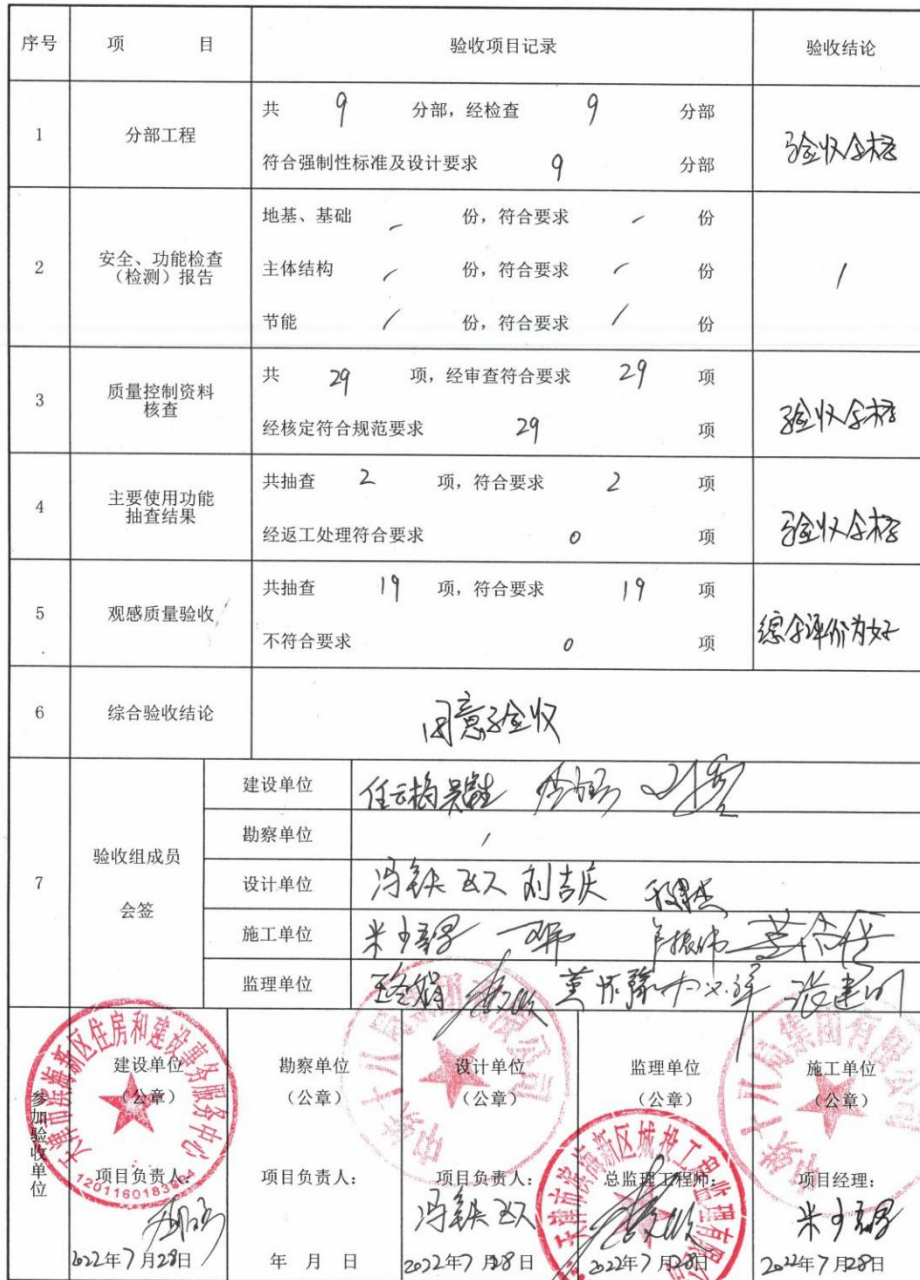 序号 项 目 验收项目记录 验收结论
1 分部工程 共 9 分部，经检查 9 分部
符合强制性标准及设计要求 9 分部
验收合格
2 安全、功能检查
（检测）报告
地基、基础 / 份，符合要求 / 份
主体结构 / 份，符合要求 / 份
节能 / 份，符合要求 / 份
/
3 质量控制资料
核查
共 29 项，经审查符合要求 29 项
经核定符合规范要求 29 项
验收合格
4 主要使用功能
抽查结果
共抽查 2 项，符合要求 2 项
经返工处理符合要求 0 项
验收合格
5 观感质量验收
共抽查 19 项，符合要求 19 项
不符合要求 0 项
综合评价为好
6 综合验收结论 同意验收
7 验收组成员
会签
建设单位
勘察单位 /
设计单位 刘吉庆
施工单位
监理单位
参加验收单位
建设单位
（公章）
项目负责人：
2022年7月28日
天津市滨海新区住房和建设事务服务中心
勘察单位
（公章）
项目负责人：
年 月 日
设计单位
（公章）
项目负责人：
2022年7月28日
监理单位
（公章）
总监理工程师：
2022年7月28日
施工单位
（公章）
项目经理：
2022年7月28日